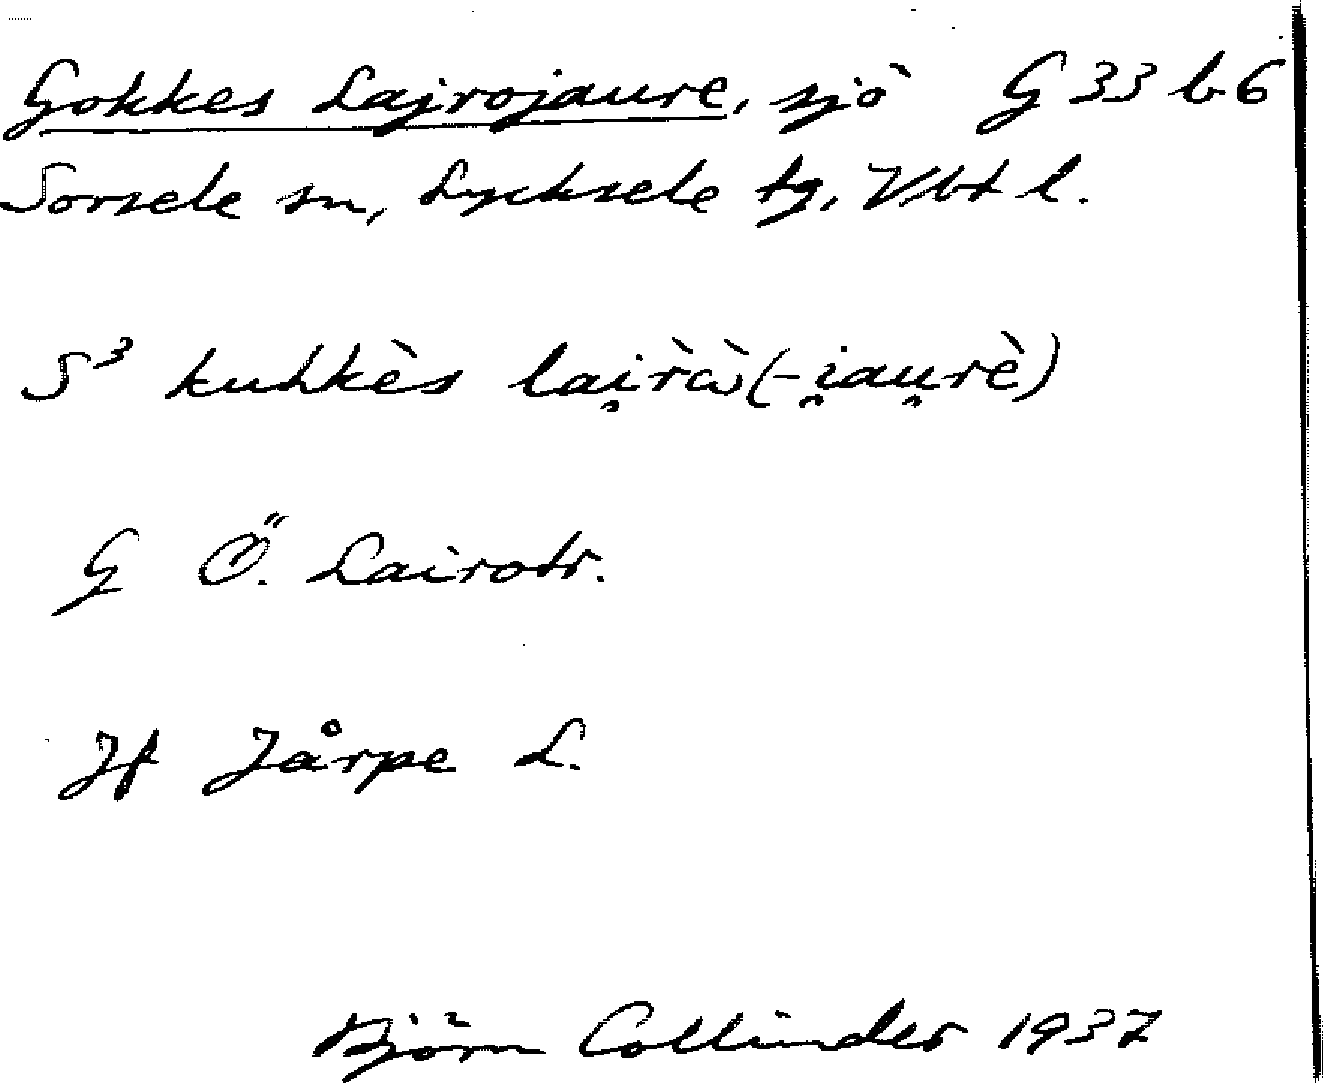 Gokkes Lajrojaure, sjö G 33 b 6
Sorsele sn, Lycksele tg, Vbt l.
S³ kuhkès lai̯r̀ὰ (-i̯au̯rè)
G Ö. Lairotr.
Jf Jårpe L.
Björn Collinder 1937